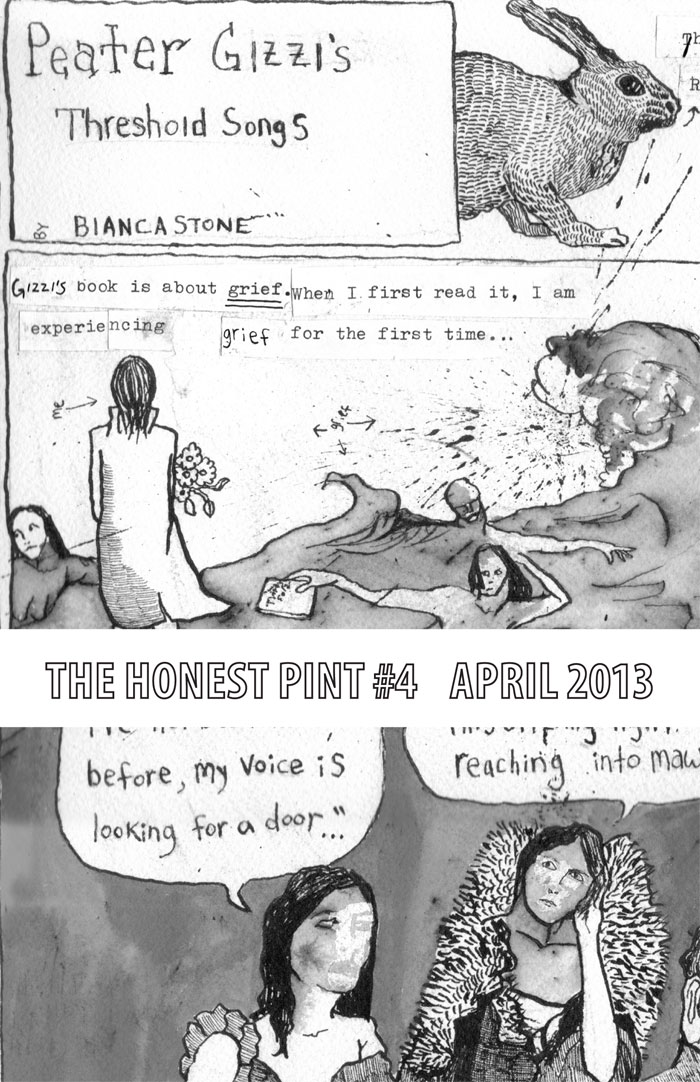 Peater Gizzi's
Threshold Songs
BY BIANCA STONE
Th
R
Gizzi's book is about grief. When I first read it, I am
experiencing grief for the first time...
me
grief
THE HONEST PINT #4 APRIL 2013
before, my voice is
looking for a door..."
reaching into maw